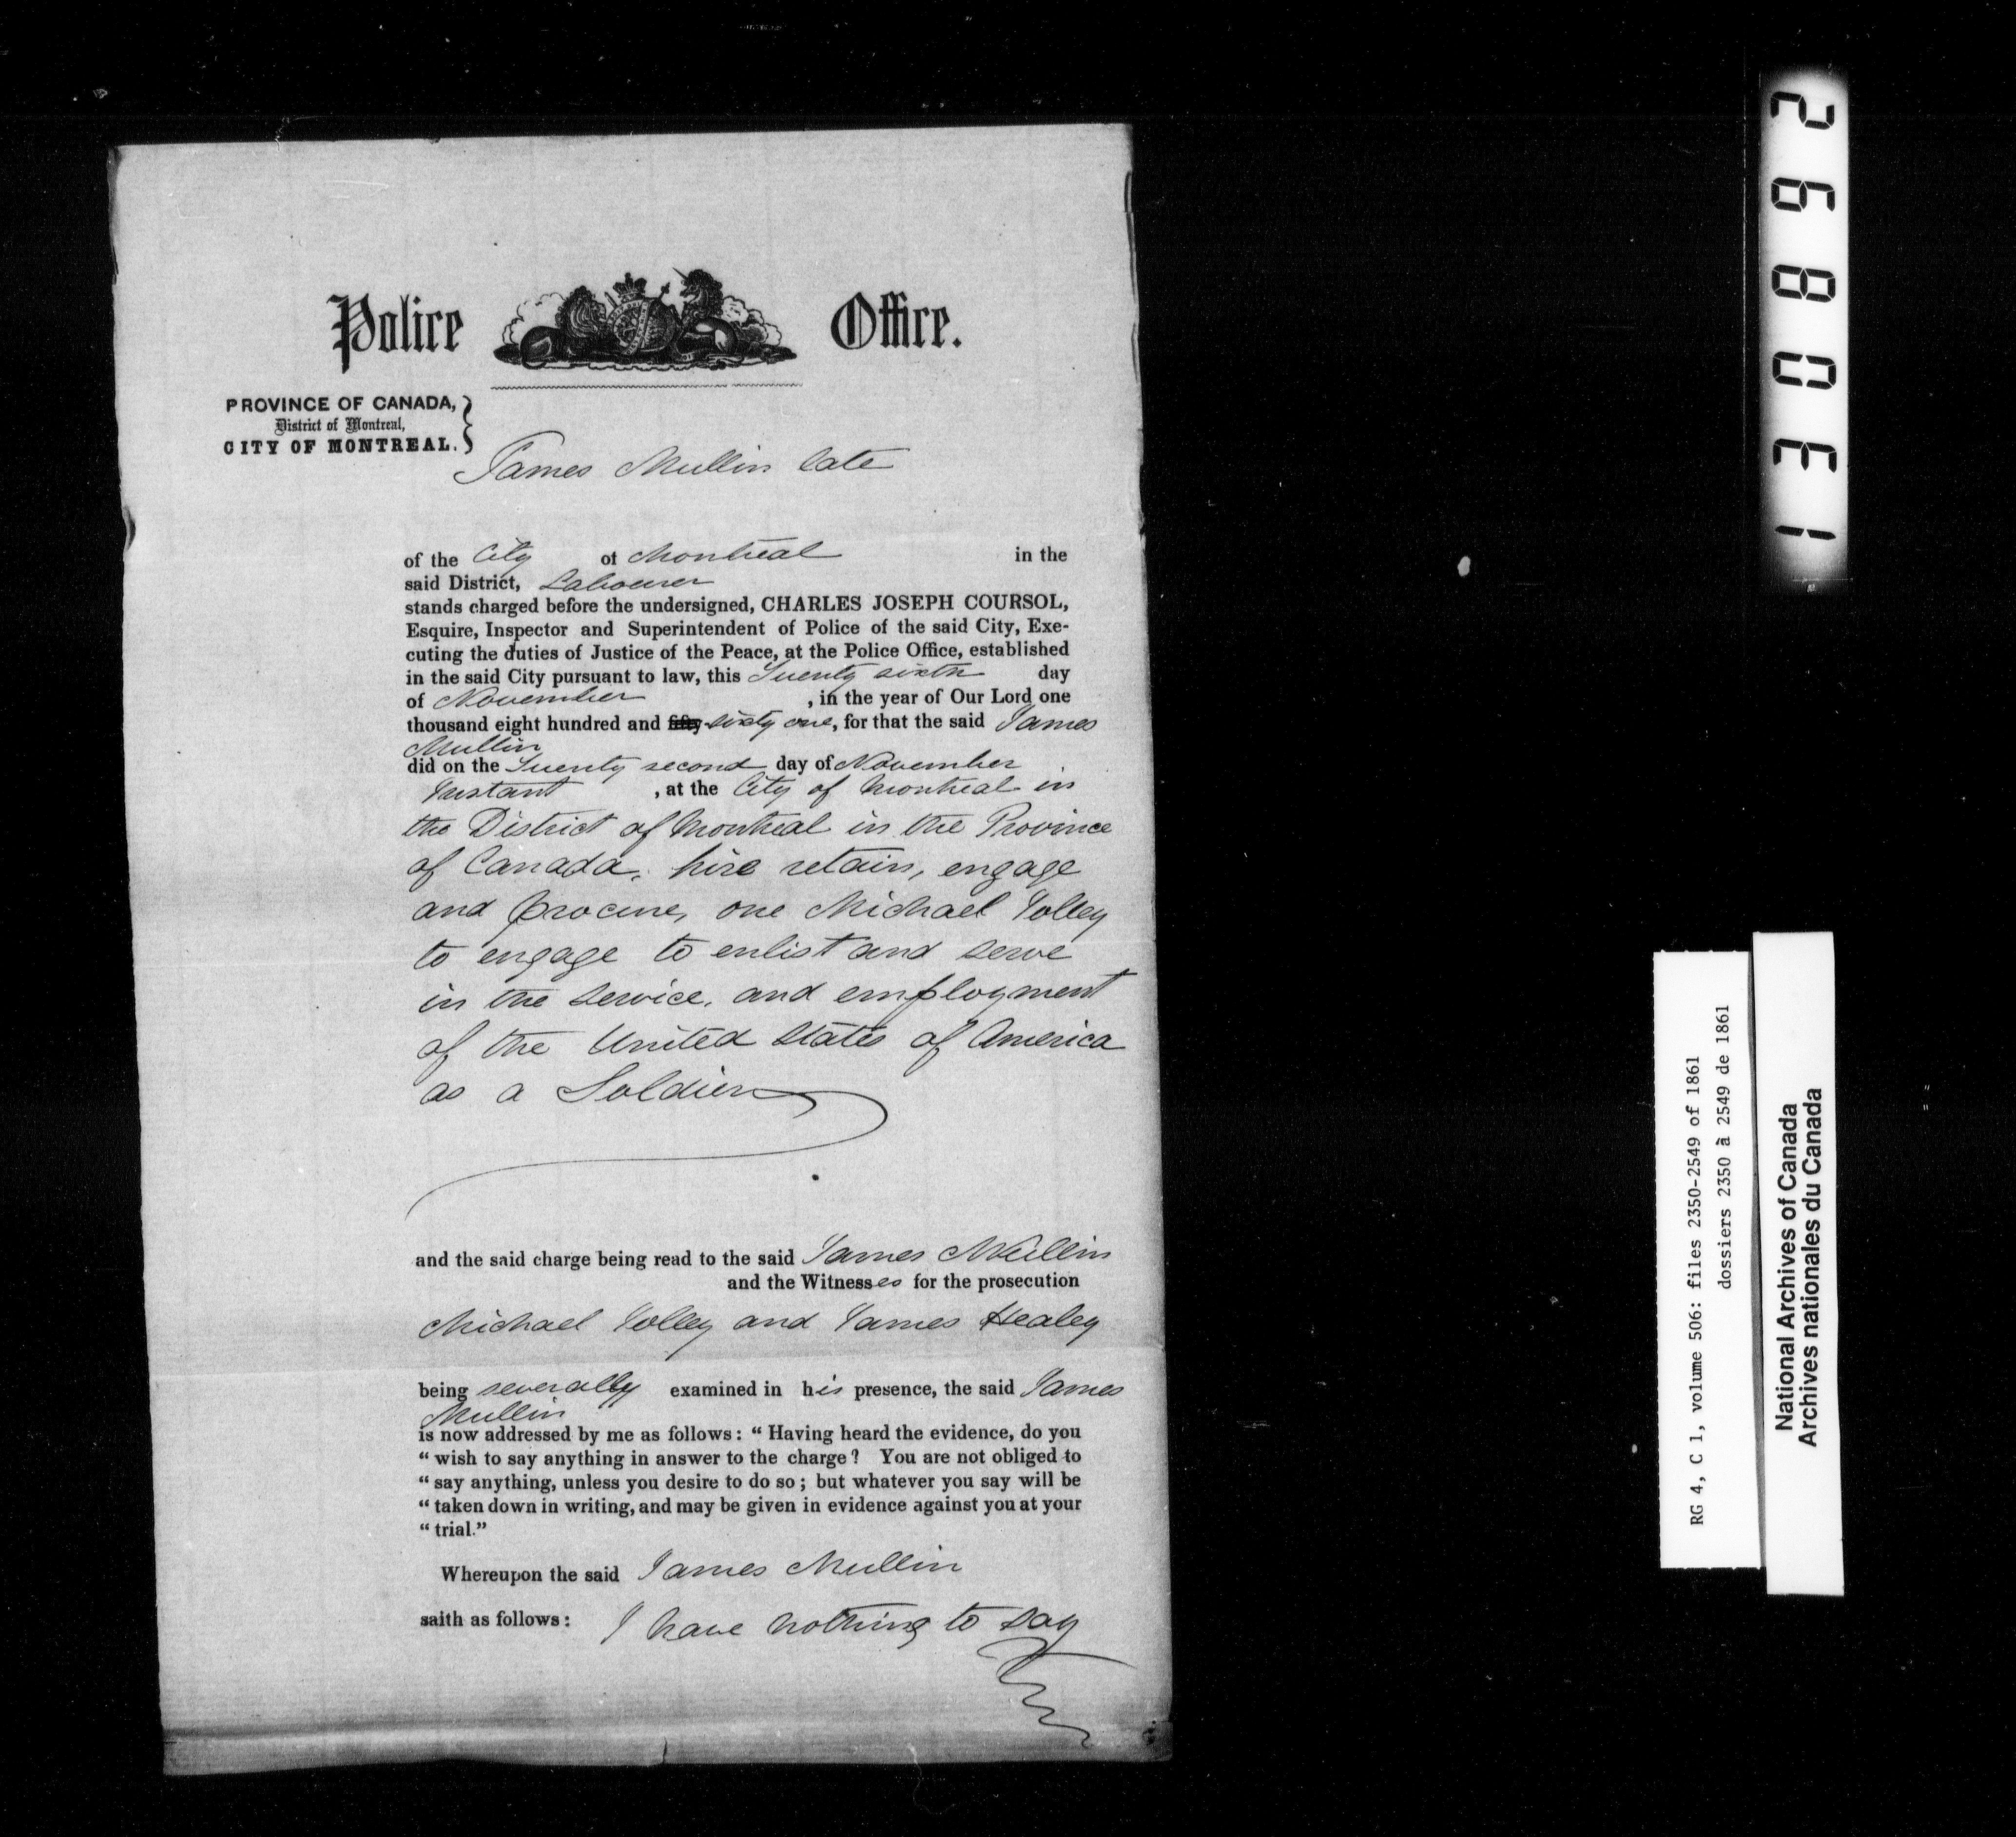 Police Office.
PROVINCE OF CANADA,
District of Montreal,
CITY OF MONTREAL.
James Mullin late
of the City of Montreal in the
said District, Labourer
stands charged before the undersigned, CHARLES JOSEPH COURSOL,
Esquire, Inspector and Superintendent of Police of the said City, Exe-
cuting the duties of Justice of the Peace, at the Police Office, established
in the said City pursuant to law, this Twenty sixth day
of November , in the year of Our Lord one
thousand eight hundred and fifty sixty one, for that the said James
Mullin
did on the Twenty second day of November
Instant , at the City of Montreal in
the District of Montreal in the Province
of Canada, hire retain, engage
and procure, one Michael Tolley
to engage to enlist and serve
in the Service, and employment
of the United States of America
as a Soldier
and the said charge being read to the said James Mullin
and the Witnesses for the prosecution
Michael Tolley and James Healey
being severally examined in his presence, the said James
Mullin
is now addressed by me as follows: “ Having heard the evidence, do you
“ wish to say anything in answer to the charge? You are not obliged to
“ say anything, unless you desire to do so; but whatever you say will be
“ taken down in writing, and may be given in evidence against you at your
“ trial.”
Whereupon the said James Mullin
saith as follows: I have nothing to say
268031
RG 4, C 1, volume 506: files 2350-2549 of 1861
dossiers 2350 à 2549 de 1861
National Archives of Canada
Archives nationales du Canada